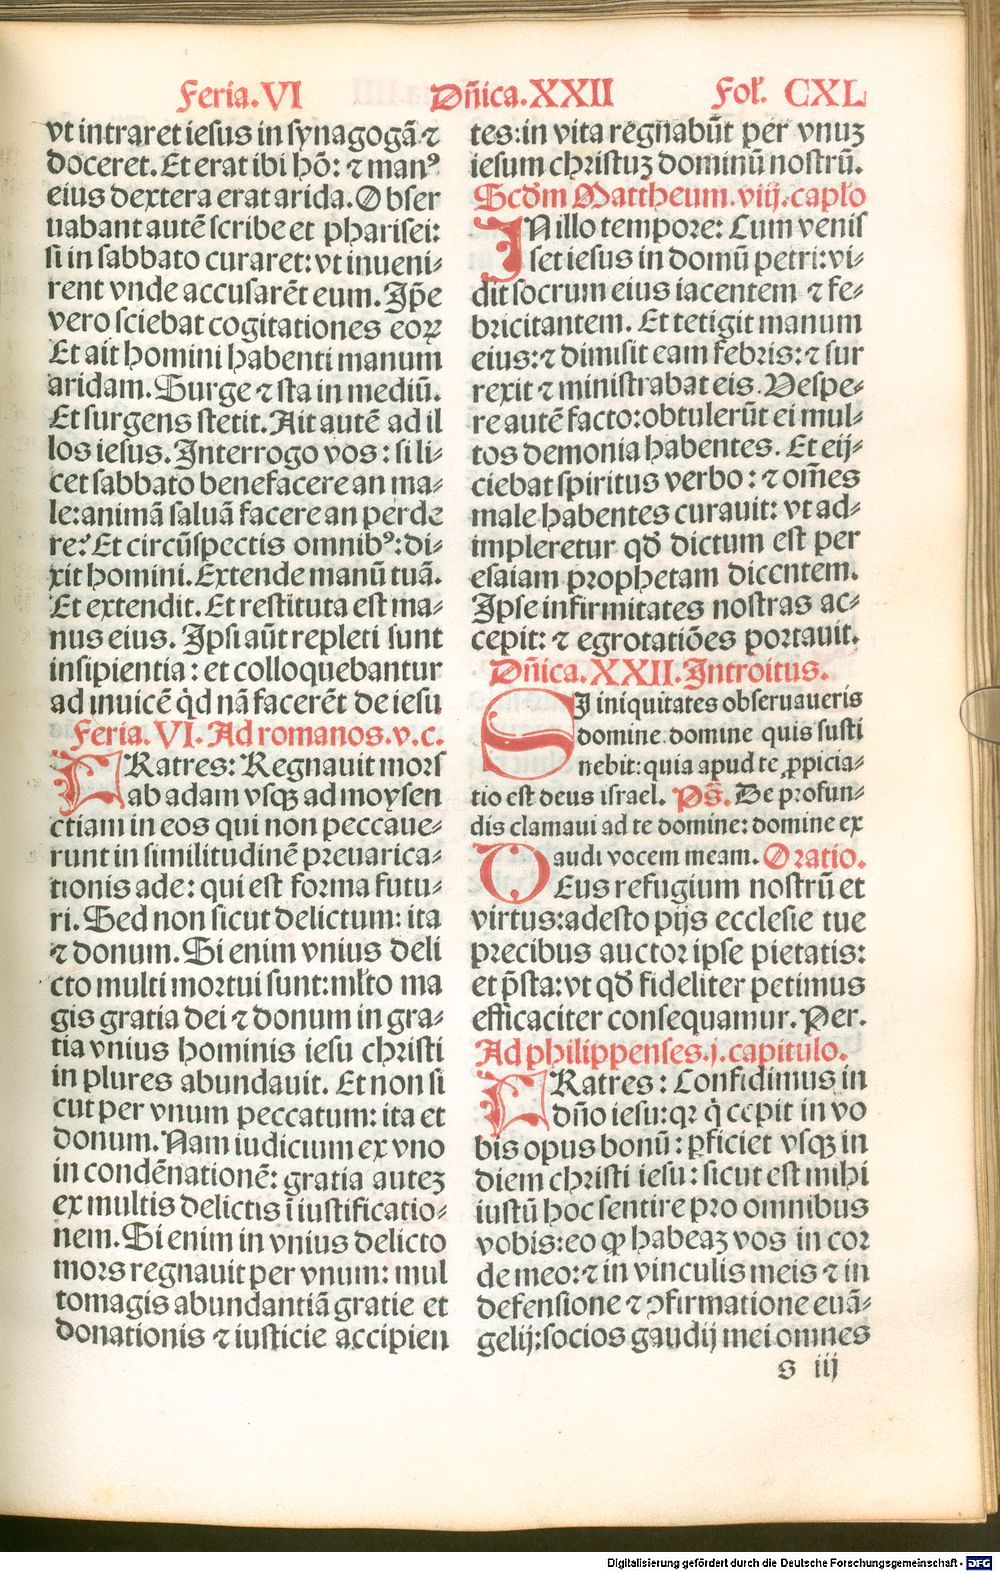 Feria.VI Dñica.XXII Fol. CXL
vt intraret iesus in synagogã ⁊
doceret. Et erat ibi hõ: ⁊ manꝰ
eius dextera erat arida. Obser
uabant autẽ scribe et pharisei:
si in sabbato curaret: vt inueni⸗
rent vnde accusarẽt eum. Ip̃e
vero sciebat cogitationes eoꝝ
Et ait homini habenti manum
aridam. Surge ⁊ sta in mediũ.
Et surgens stetit. Ait autẽ ad il
los iesus. Interrogo vos: si li⸗
cet sabbato benefacere an ma⸗
le: animã saluã facere an perde
re? Et circũspectis omnibꝰ: di⸗
xit homini. Extende manũ tuã.
Et extendit. Et restituta est ma⸗
nus eius. Ipsi aũt repleti sunt
insipientia: et colloquebantur
ad inuicẽ q̇d nã facerẽt de iesu
Feria. VI. Ad romanos. v. c.
FRatres: Regnauit mors
ab adam vsqꝫ ad moysen
etiam in eos qui non peccaue⸗
runt in similitudinẽ preuarica⸗
tionis ade: qui est forma futu⸗
ri. Sed non sicut delictum: ita
⁊ donum. Si enim vnius deli
cto multi mortui sunt: ml̃to ma
gis gratia dei ⁊ donum in gra⸗
tia vnius hominis iesu christi
in plures abundauit. Et non si
cut per vnum peccatum: ita et
donum. Nam iudicium ex vno
in condẽnationẽ: gratia auteꝫ
ex multis delictis ĩ iustificatio⸗
nem. Si enim in vnius delicto
mors regnauit per vnum: mul
tomagis abundantiã gratie et
donationis ⁊ iusticie accipien
tes: in vita regnabũt per vnuꝫ
iesum christuꝫ dominũ nostrũ.
Scd̃m Mattheum. viij. capl̃o
IN illo tempore: Cum venis
set iesus in domũ petri: vi⸗
dit socrum eius iacentem ⁊ fe⸗
bricitantem. Et tetigit manum
eius: ⁊ dimisit eam febris: ⁊ sur
rexit ⁊ ministrabat eis. Vespe⸗
re autẽ facto: obtulerũt ei mul⸗
tos demonia habentes. Et eij⸗
ciebat spiritus verbo: ⁊ om̃es
male habentes curauit: vt ad⸗
impleretur qd̃ dictum est per
esaiam prophetam dicentem.
Ipse infirmitates nostras ac⸗
cepit: ⁊ egrotatiões portauit.
Dñica. XXII. Introitus.
SI iniquitates obseruaueris
domine. domine quis susti
nebit: quia apud te ꝓpicia⸗
tio est deus israel. Ps̃. De profun⸗
dis clamaui ad te domine: domine ex
audi vocem meam. Oratio.
DEus refugium nostrũ et
virtus: adesto pijs ecclesie tue
precibus auctor ipse pietatis:
et p̃sta: vt qd̃ fideliter petimus
efficaciter consequamur. Per.
Ad philippenses. j. capitulo.
FRatres: Confidimus in
dño iesu: qꝛ q̇ cepit in vo
bis opus bonũ: ꝑficiet vsqꝫ in
diem christi iesu: sicut est mihi
iustũ hoc sentire pro omnibus
vobis: eo ꝙ habeaꝫ vos in cor
de meo: ⁊ in vinculis meis ⁊ in
defensione ⁊ ꝯfirmatione euã⸗
gelij: socios gaudij mei omnes
s iij
Digitalisierung gefördert durch die Deutsche Forschungsgemeinschaft - DFG